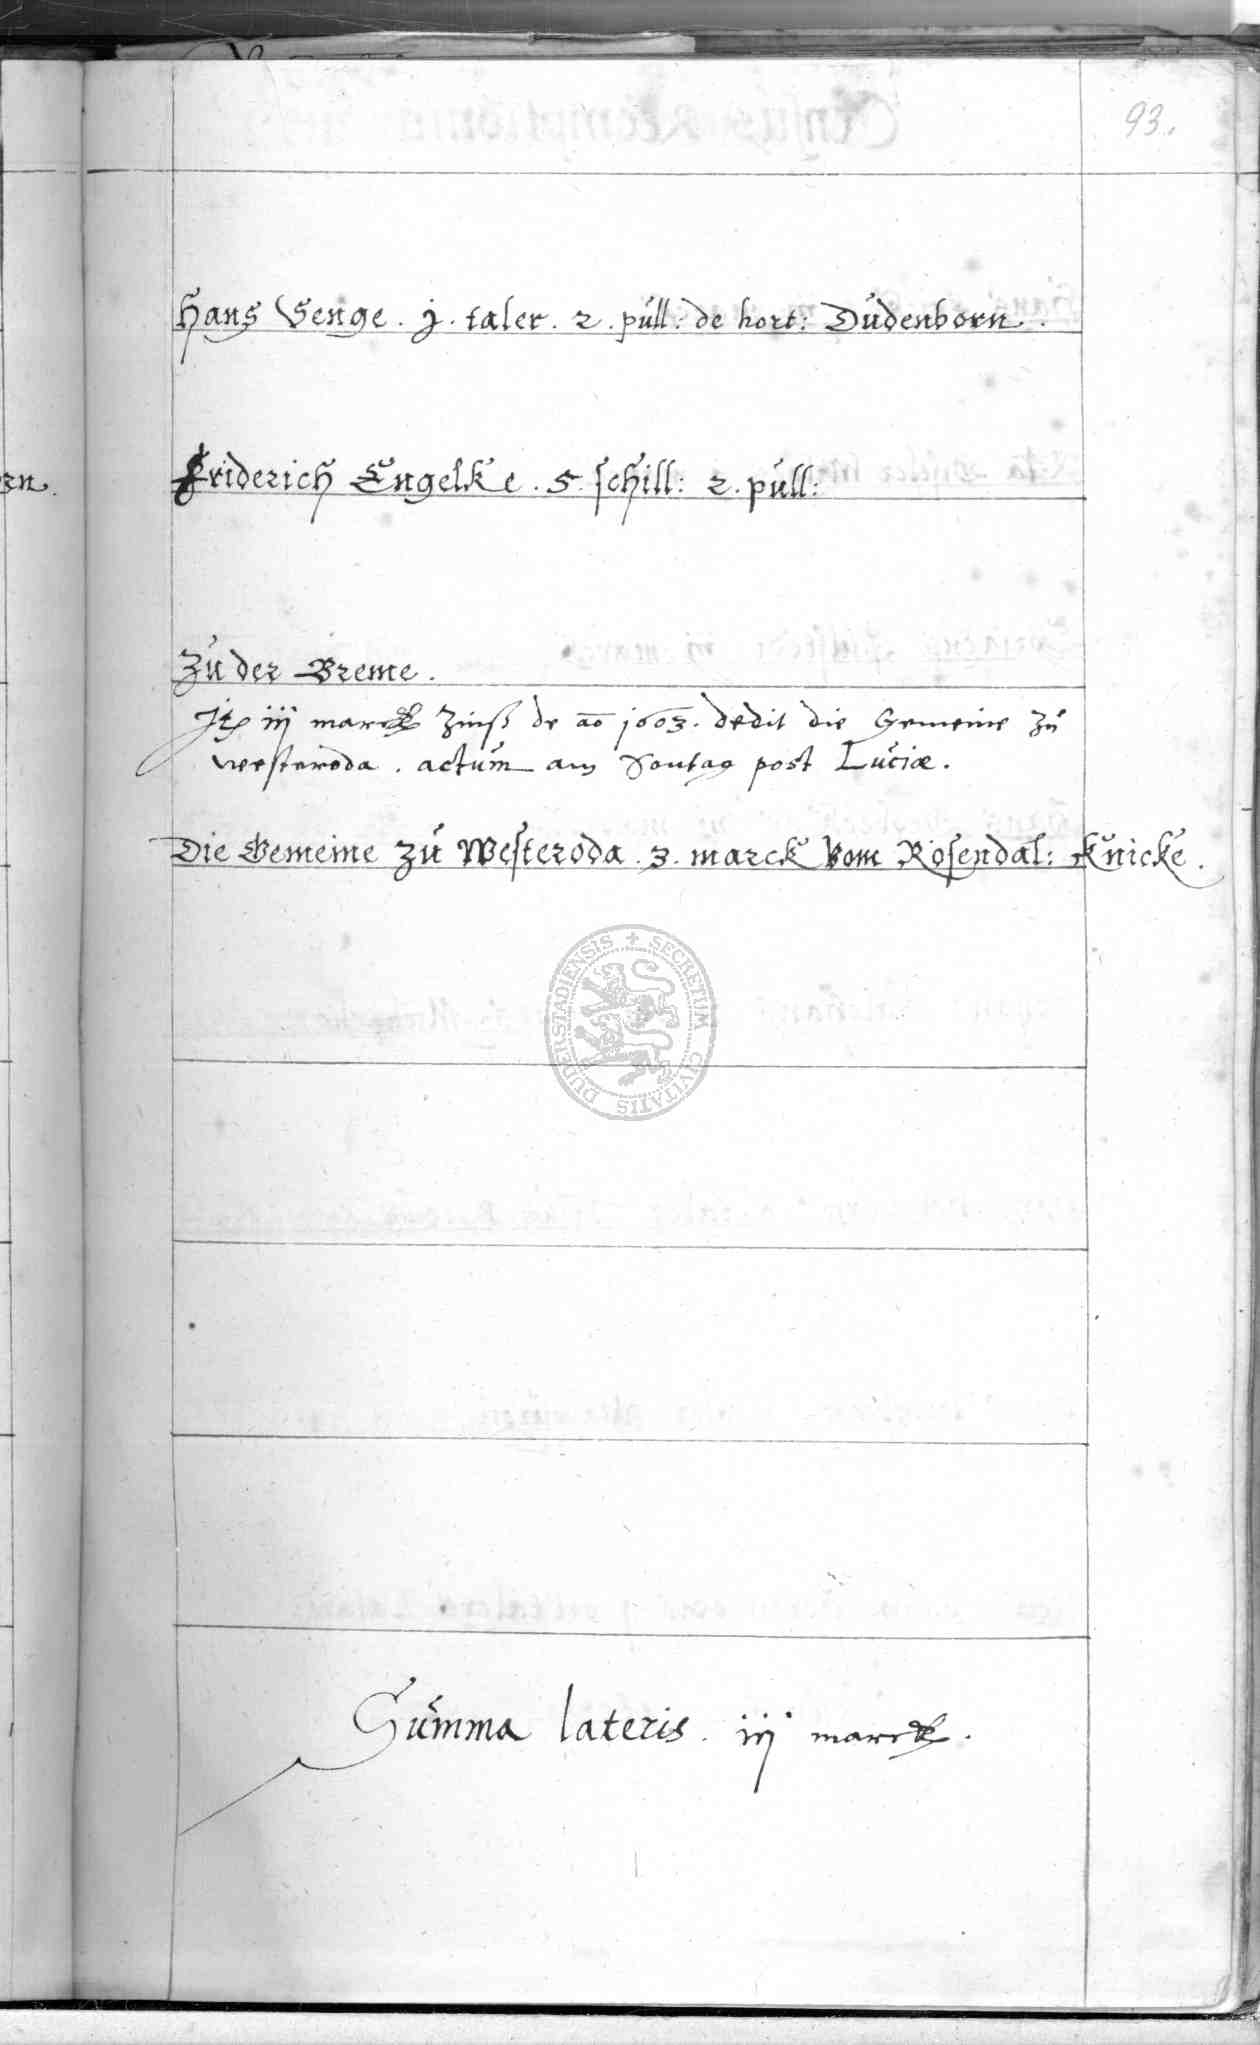 93.
Hans Senge . j . taler . 2 . pull: de hort: Dudenborn .
rn .
Friderich Engelke . 5 . schill: 2 . pull:
Zu der Breme .
It iij marck Zinß de ao 1603 . dedit die Gemeine zu
westeroda . actum am Sontag post Luciæ .
Die Gemeine zu Westeroda . 3 . marck vom Rosendal: Knicke .
SECRETUM CIVITATIS DUDERSTADIENSIS
Summa lateris . iij marck .